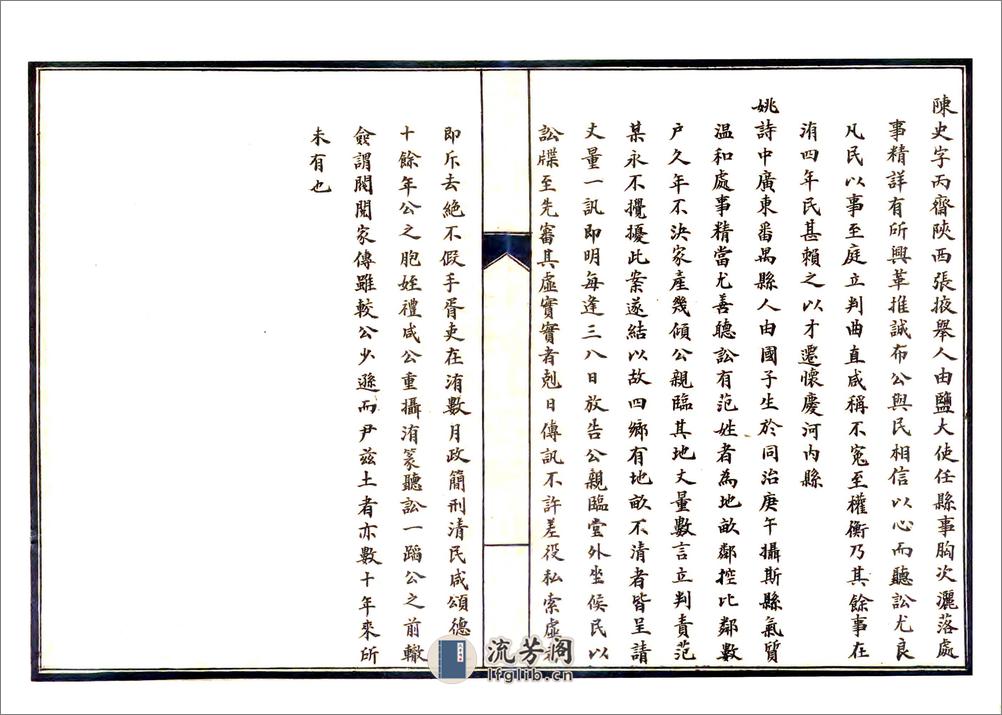 陳史字丙齋陝西張掖舉人由鹽大使任縣事胸次灑落處
事精詳有所興革推誠布公與民相信以心而聽訟尤良
凡民以事至庭立判曲直咸稱不寃至權衡乃其餘事在
洧四年民甚賴之以才遷懷慶河內縣
姚詩中廣東番禺縣人由國子生於同治庚午攝斯縣氣質
温和處事精當尤善聽訟有范姓者為地畝鄰控比鄰數
户久年不決家產幾傾公親臨其地丈量數言立判責范
某永不攪擾此案遂結以故四鄉有地畝不清者皆呈請
丈量一訊即明每逢三八日放告公親臨堂外坐候民以
訟牒至先審其虛實實者剋日傳訊不許差役私索虛者
即斥去絶不假手胥吏在洧數月政簡刑清民咸頌德
十餘年公之胞姪禮咸公重攝洧篆聽訟一蹈公之前轍
僉謂閥閱家傳雖較公少遜而尹兹土者亦數十年來所
未有也
流芳阁
lfglib.cn